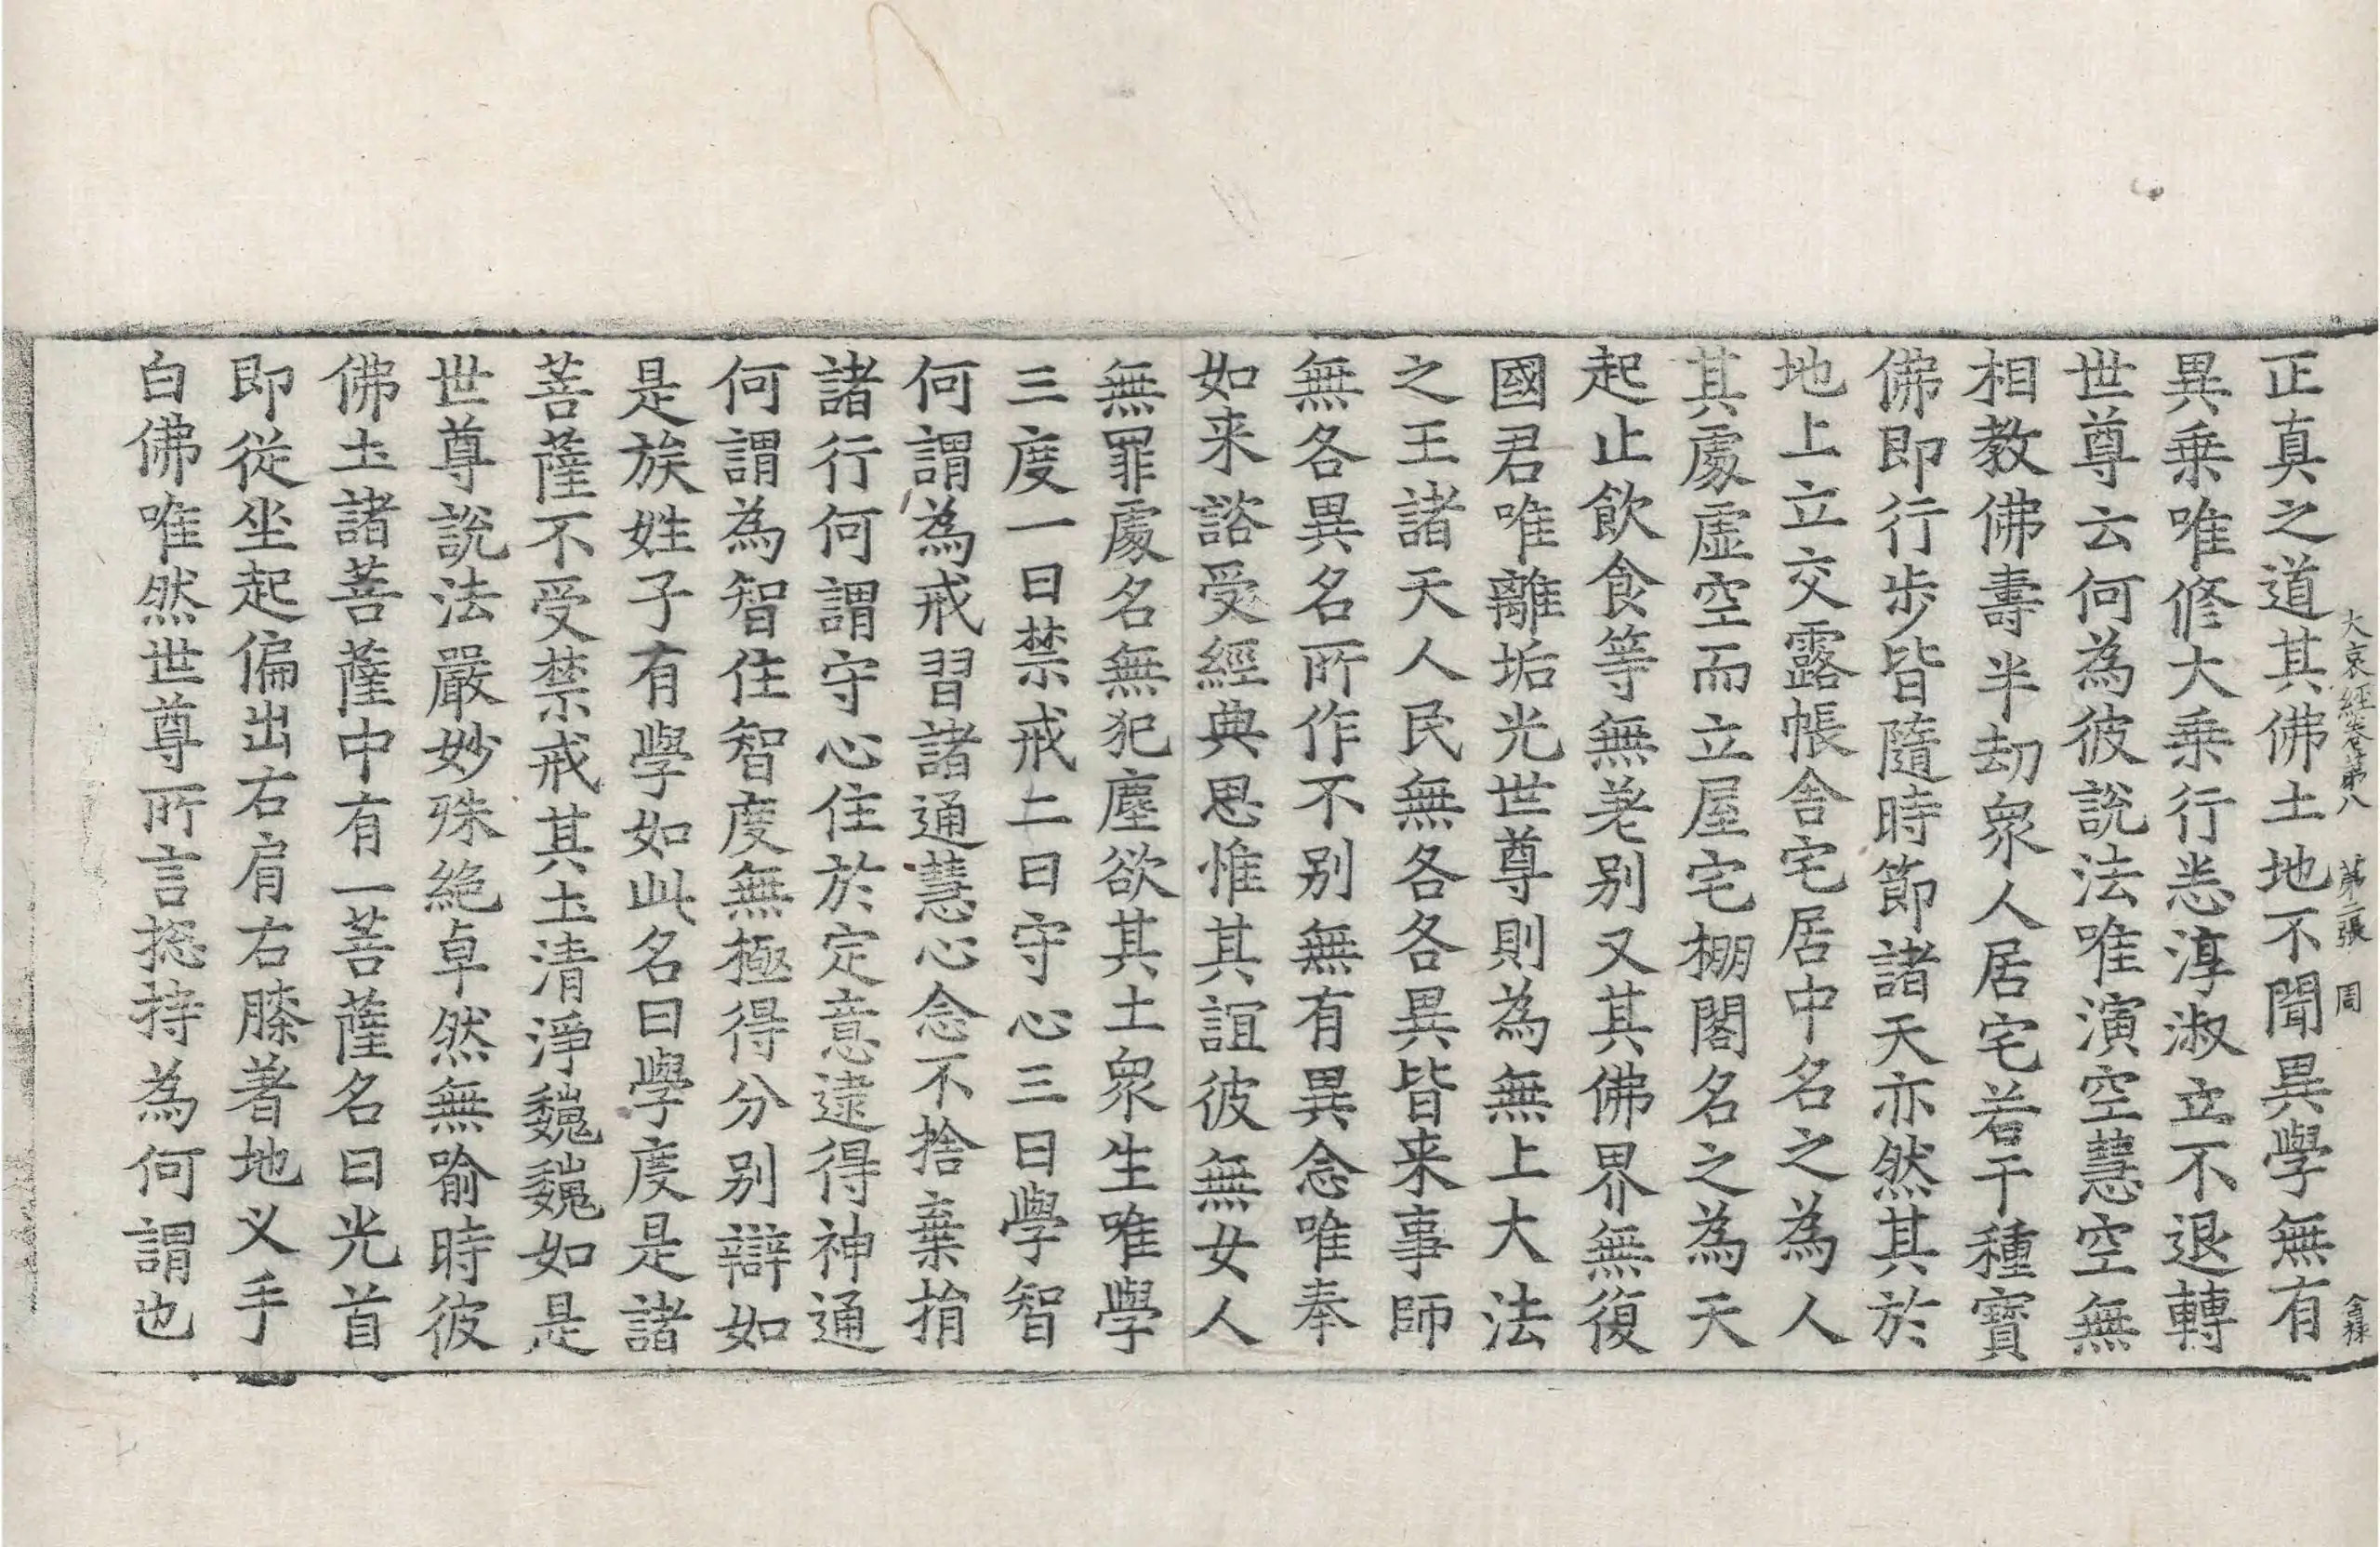 大哀經卷第八　第二張　周　舍祿
正真之道其佛土地不聞異學無有
異乘唯修大乘行悉淳淑立不退轉
世尊云何為彼說法唯演空慧空無
相教佛壽半劫衆人居宅若干種寶
佛即行步皆隨時節諸天亦然其於
地上立交露帳舍宅居中名之為人
其處虛空而立屋宅棚閣名之為天
起止飲食等無差別又其佛界無復
國君唯離垢光世尊則為無上大法
之王諸天人民無各各異皆来事師
無各異名所作不別無有異念唯奉
如来諮受經典思惟其誼彼無女人
無罪處名無犯塵欲其土衆生唯學
三度一曰禁戒二曰守心三曰學智
何謂為戒習諸通慧心念不捨棄捐
諸行何謂守心住於定意逮得神通
何謂為智住智度無極得分別辯如
是族姓子有學如此名曰學度是諸
菩薩不受禁戒其圡清淨巍巍如是
世尊說法嚴妙殊絶卓然無喻時彼
佛圡諸菩薩中有一菩薩名曰光首
即從坐起偏出右肩右膝著地叉手
白佛唯然世尊所言捴持為何謂也